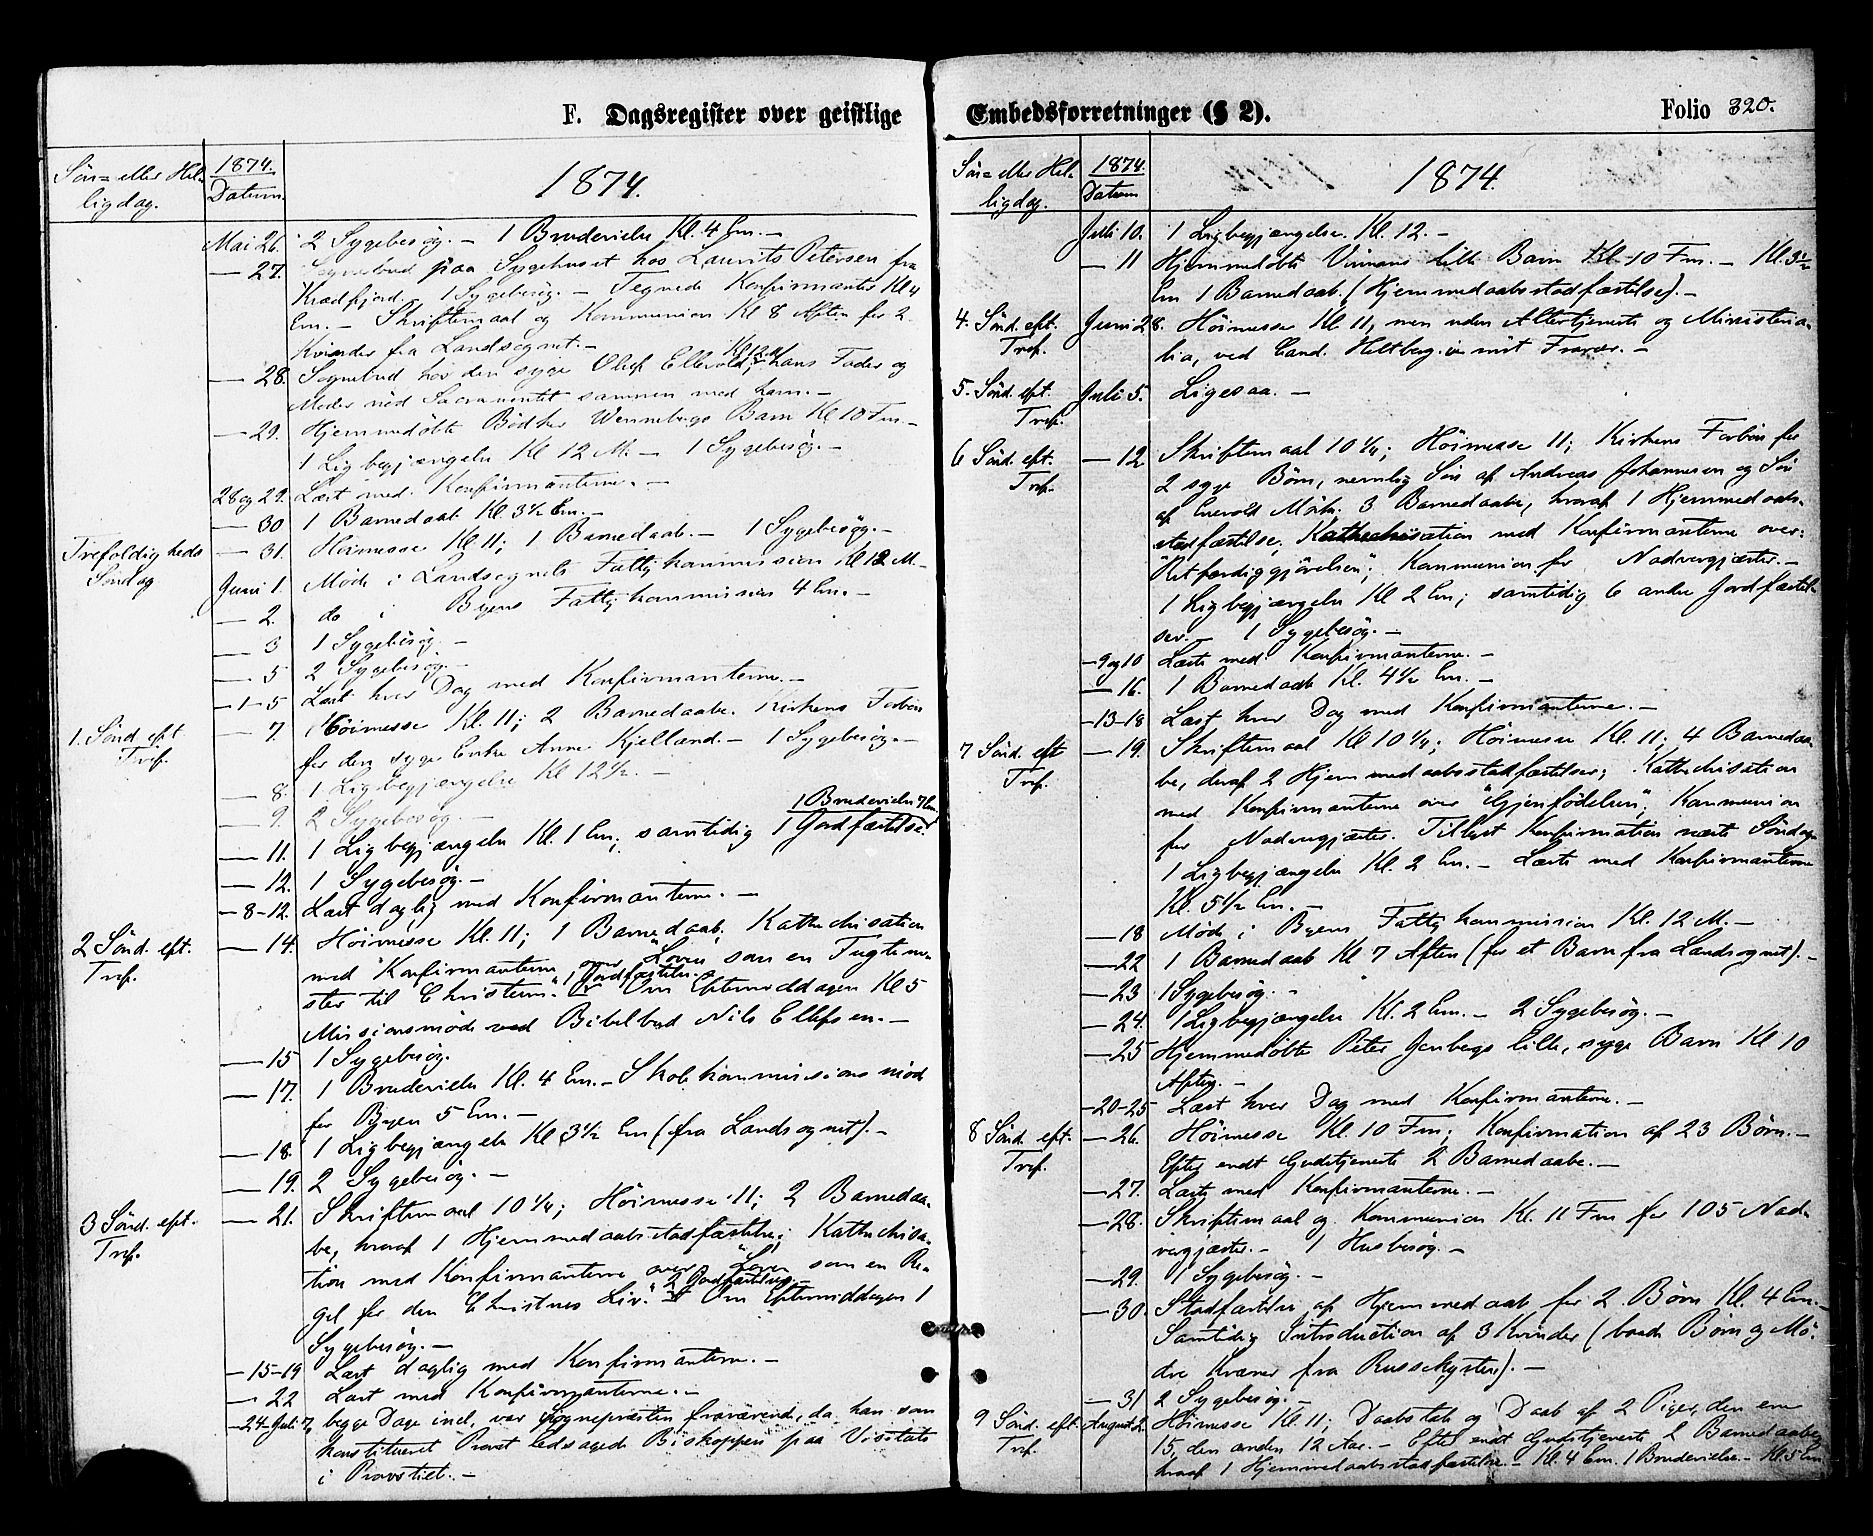 F. Dagsregister over geistlige
Søn= eller Hel=
ligdag.
1874.
Datum.
1874.
Mai 26. 2 Sygebesøg. – 1 Brudevielse Kl. 4 Em. –
— 27. Sognebud paa Sygehuset hos Laurits Petersen fra
1 Sygebesøg. – Tegnede Konfirmanter Kl 4
Em. – Skriftemaal og Kommunion Kl 8 Aften for 2
Kvinder fra Landsognet. –
— 28. Sognebud hos den syge Oluf Ellevold, Kl 12 og hans Fader og
Moder nød Sacramentet sammen med ham. –
— 29. Hjemmedøbte Bødker Wennebergs Barn Kl 10 Fm. –
1 Ligbegjængelse Kl 12 M. – 1 Sygebesøg. –
28 og 29. Læst med Konfirmanterne. –
— 30 1 Barnedaab Kl 3½ Em. –
Trefoldigheds
Søndag
— 31. Høimesse Kl 11; 1 Barnedaab. – 1 Sygebesøg. –
Juni 1. Møde i Landsognets Fattigkommission Kl 12 M. –
— 2. do i Byens Fattigkommission 4 Em. –
— 3 1 Sygebesøg. –
— 5 2 Sygebesøg. –
— 1-5 Læst hver Dag med Konfirmanterne. –
1. Sønd. eft.
Tref.
— 7. Høimesse Kl. 11; 2 Barnedaabe. Kirkens Forbøn
for den syge Enke Anne Kjelland. – 1 Sygebesøg. –
— 8. 1 Ligbegjængelse Kl 12½. –
— 9. 2 Sygebesøg. –
1 Brudevielse 7 Em.
— 11. 1 Ligbegjængelse Kl. 1 Em; samtidig 1 Jordfæstelse.
— 12. 1 Sygebesøg. –
— 8-12. Læst daglig med Konfirmanterne. –
2 Sønd. eft.
Tref.
— 14. Høimesse Kl. 11; 1 Barnedaab; Kathechisation
med Konfirmanterne over "Loven som en Tugteme-
ster til Christum". 1 Jordfæstelse. Om Eftermiddagen Kl 5
Missionsmøde ved Bibelbud Nils Ellefsen. –
— 15 1 Sygebesøg.
— 17. 1 Brudevielse Kl. 4 Em. – Skolekommissionsmøde
for Byen 5 Em. –
— 18. 1 Ligbegjængelse Kl 3½ Em (fra Landsognet). –
— 19. 2 Sygebesøg. –
3 Sønd. eft.
Tref.
— 21. Skriftemaal 10¼; Høimesse 11; 2 Barnedaa-
be, hvoraf 1 Hjemmedaabsstadfæstelse; Kathechisa-
tion med Konfirmanterne over "Loven som en Re-
gel for den Christnes Liv." 2 Jordfæstelser. Om Eftermiddagen 1
Sygebesøg. –
— 15-19 Læst daglig med Konfirmanterne. –
— 22 Læst med Konfirmanterne. –
— 24-Juli 7, begge Dage incl., var Sognepræsten fraværende, da han som
konstitueret Provst ledsagede Biskoppen paa Visitats
i Provstiet. –
Embedsforretninger (§ 2).
Folio 320.
Søn= eller Hel=
ligdag.
1874.
Datum
1874.
Juli 10. 1 Ligbegjængelse Kl. 12. –
— 11 Hjemmedøbte lille Barn Kl 10 Fm. – Kl. 3½
Em 1 Barnedaab. (Hjemmedaabsstadfæstelse). –
4. Sønd. eft.
Tref.
Juni 28. Høimesse Kl 11, men uden Altertjeneste og Ministeria-
lia, ved Cand. Heltberg i mit Fravær. –
5. Sønd. eft.
Tref.
Juli 5. Ligesaa. –
6 Sønd. eft.
Tref.
— 12 Skriftemaal 10¼; Høimesse 11; Kirkens Forbøn for
2 syge Børn, nemlig Søn af Andreas Johannesen og Søn
af Enevold Mørk. 3 Barnedaabe, hvoraf 1 Hjemmedaabs-
stadfæstelse; Kathechisation med Konfirmanterne over:
"Retfærdiggjørelsen"; Kommunion for Nadvergjæster. –
1 Ligbegjængelse Kl 2 Em; samtidig 6 andre Jordfæstel-
ser. – 1 Sygebesøg. –
— 9 og 10 Læste med Konfirmanterne. –
— 16. 1 Barnedaab Kl. 4½ Em. –
— 13-18 Læst hver Dag med Konfirmanterne. –
7 Sønd. eft
Tref.
— 19. Skriftemaal Kl 10¼; Høimesse Kl. 11; 4 Barnedaa-
be, deraf 2 Hjemmedaabsstadfæstelser; Kathechisation
med Konfirmanterne over "Gjenfødelsen"; Kommunion
for Nadvergjæster. Tillyst Konfirmation næste Søndag.
1 Ligbegjængelse Kl. 2 Em. – Læste med Konfirmanterne
Kl. 5½ Em. –
— 18 Møde i Byens Fattigkommission Kl. 12 M. –
— 22 1 Barnedaab Kl 7 Aften (for et Barn fra Landsognet). –
— 23 1 Sygebesøg. –
— 24. 1 Ligbegjængelse Kl. 2 Em. – 2 Sygebesøg. –
— 25 Hjemmedøbte Peter Jenbergs lille, syge Barn Kl 10
Aften. –
— 20-25 Læst hver Dag med Konfirmanterne. –
8 Sønd. eft.
Tref.
— 26. Høimesse Kl. 10 Fm; Konfirmation af 23 Børn. –
Efter endt Gudstjeneste 2 Barnedaabe. –
— 27. Læste med Konfirmanterne. –
— 28. Skriftemaal og Kommunion Kl. 11 Fm for 105 Nad-
vergjæster. – 1 Husbesøg. –
— 29. 1 Sygebesøg. –
— 30. Stadfæstelse af Hjemmedaab for 2 Børn Kl. 4 Em. –
Samtidig Introduction af 3 Kvinder (baade Børn og Mø-
dre Kvæner fra Russekysten). –
— 31 2 Sygebesøg. –
9 Sønd. eft.
Tref.
August 2. Høimesse Kl. 11; Daabstale og Daab af 2 Piger, den ene
15, den anden 12 Aar. – Efter endt Gudstjeneste 2 Barnedaabe,
hvoraf 1 Hjemmedaabsstadfæstelse. – Kl. 4 Em. 1 Brudevielse. – Kl. 5 Em